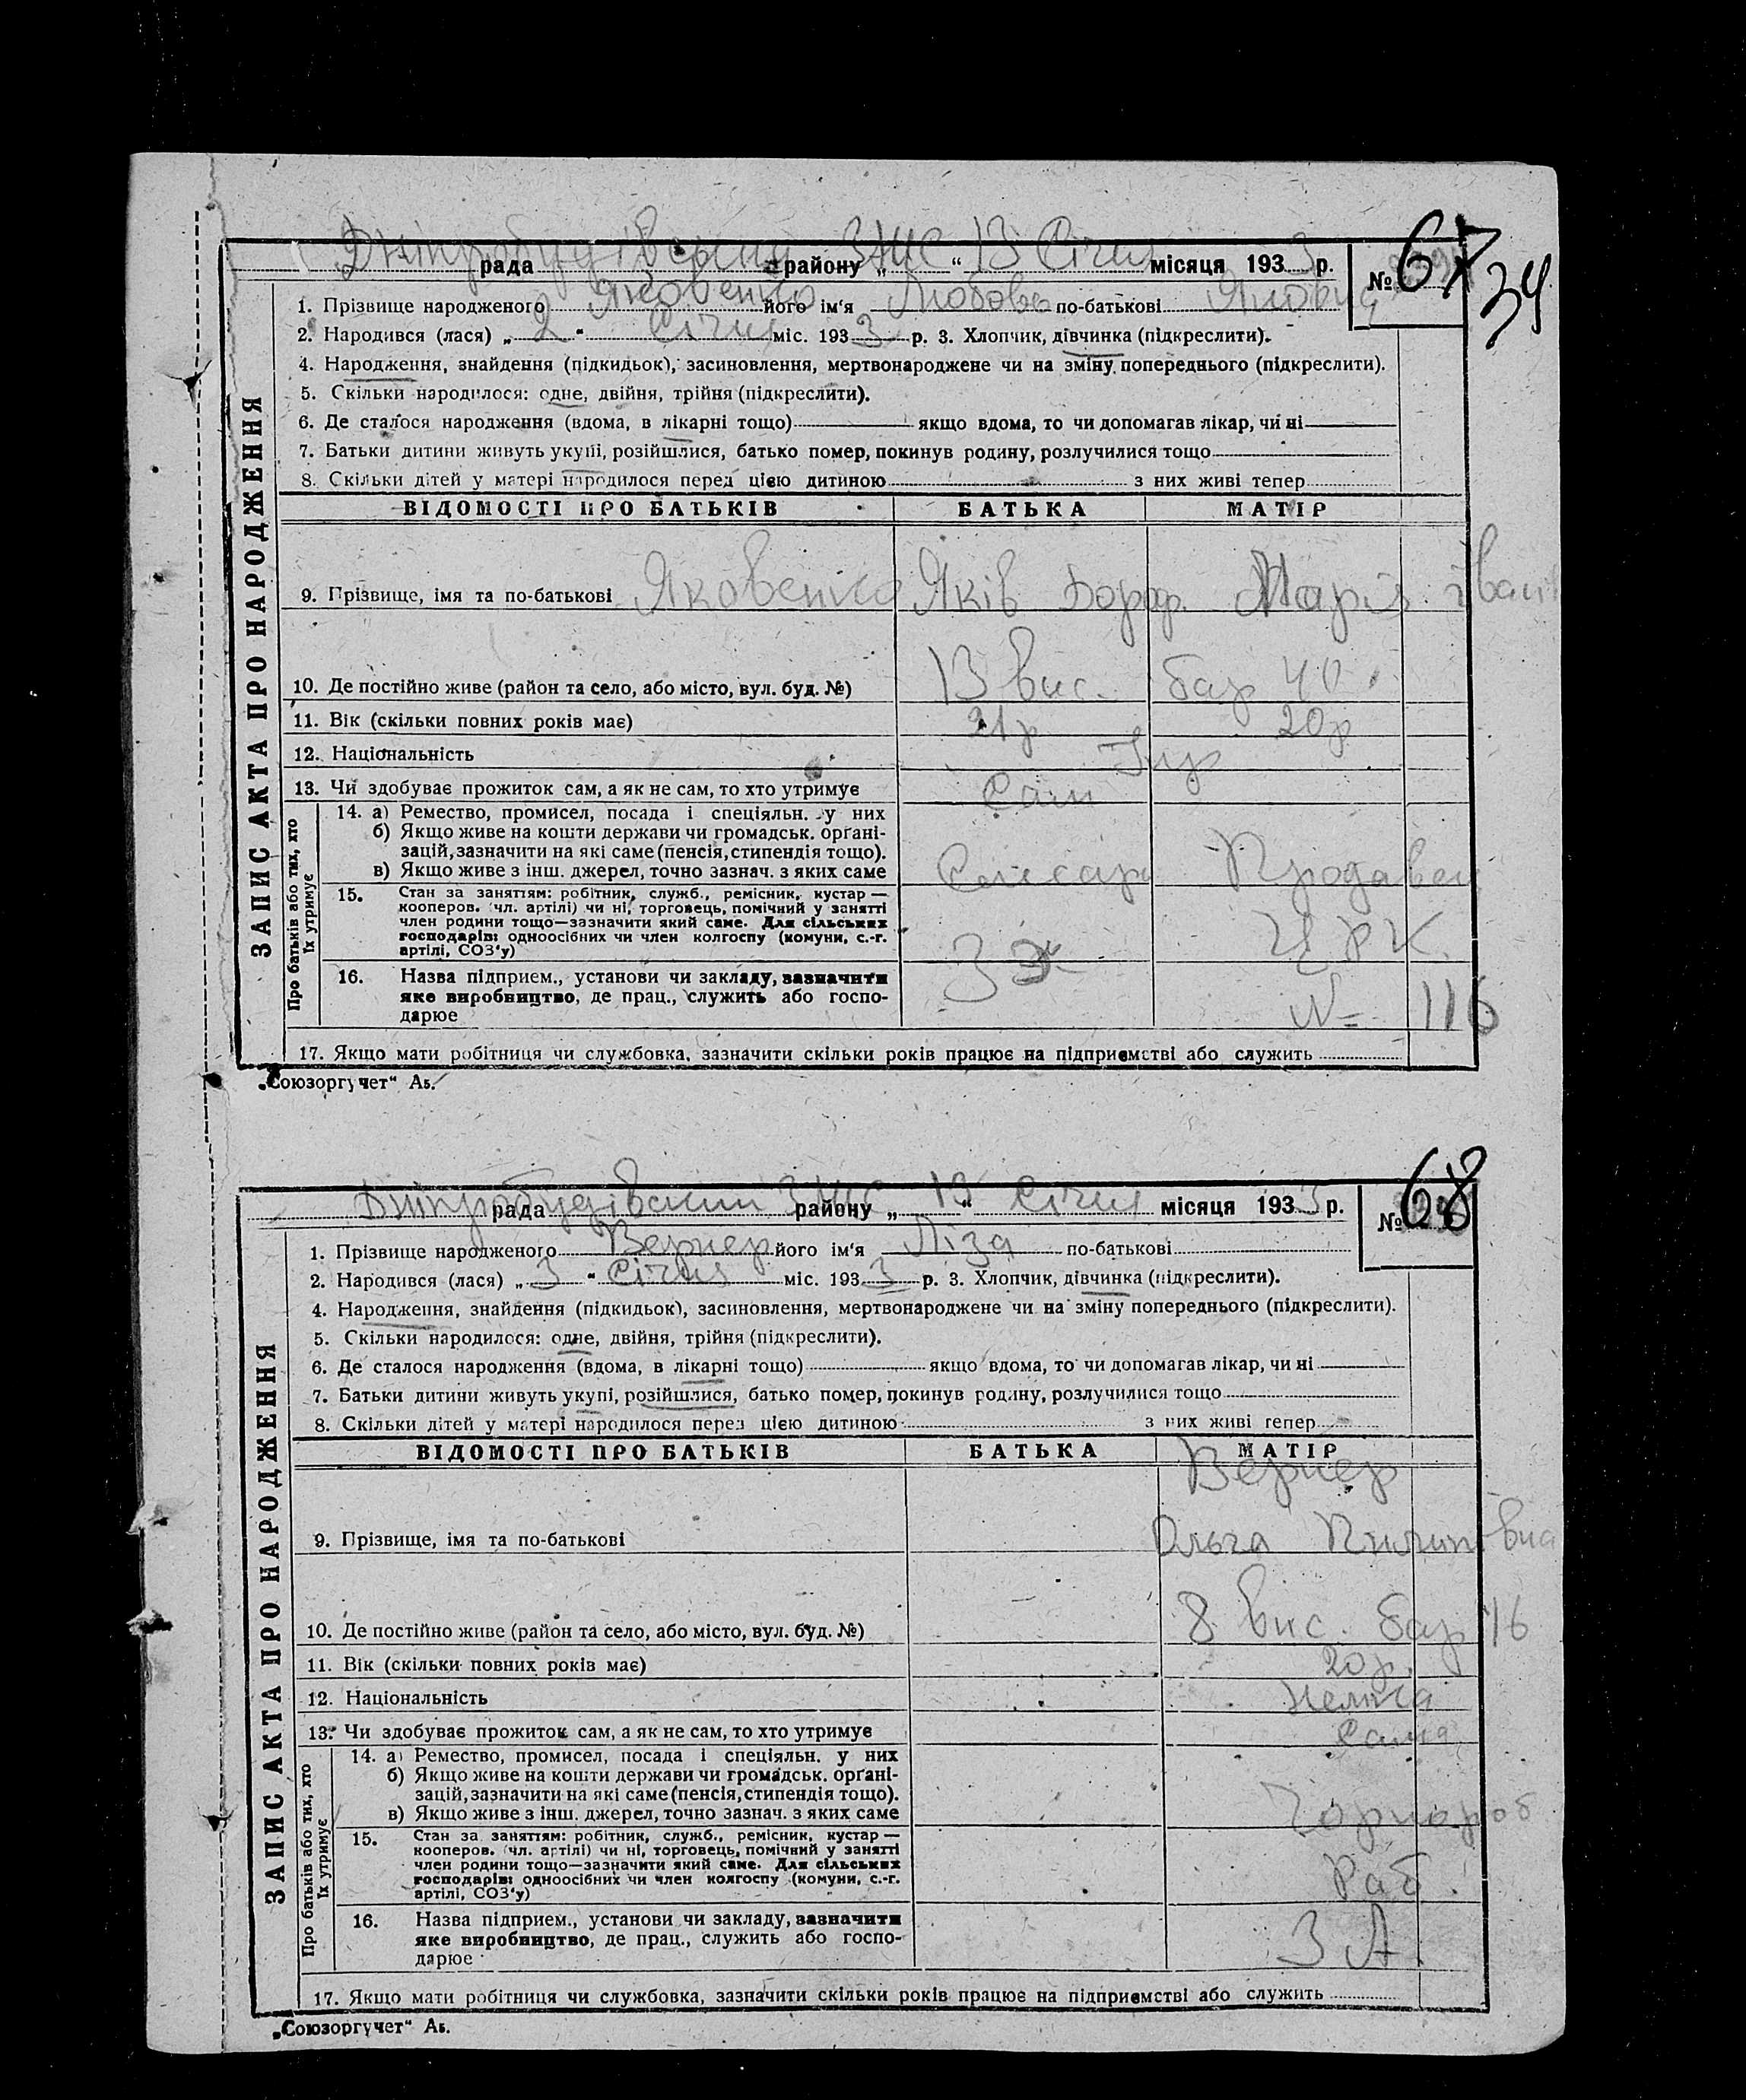 Дніпробудівський ЗАГС 13 Січня
рада району „ “ місяця 1933 р. № 67
34
1. Прізвище народженого Яковенко його ім'я Любовь по-батькові
2. Народився (лася) „ 2 “ Січня міс. 1933 р. 3. Хлопчик, дівчинка (підкреслити).
4. Народження, знайдення (підкидьок), засиновлення, мертвонароджене чи на зміну попереднього (підкреслити).
5. Скільки народилося: одне, двійня, трійня (підкреслити).
6. Де сталося народження (вдома, в лікарні тощо) якщо вдома, то чи допомагав лікар, чи ні
7. Батьки дитини живуть укупі, розійшлися, батько помер, покинув родину, розлучилися тощо
8. Скільки дітей у матері народилося перед цією дитиною з них живі тепер
ЗАПИС АКТА ПРО НАРОДЖЕННЯ
ВІДОМОСТІ ПРО БАТЬКІВ БАТЬКА МАТІР
9. Прізвище, імя та по-батькові Яковенко Яків Марія Івані
10. Де постійно живе (район та село, або місто, вул. буд. №) 13 вис. бар 40
11. Вік (скільки повних років має) 21р 20р
12. Національність Укр
13. Чи здобуває прожиток сам, а як не сам, то хто утримує Сам
Про батьків або тих, хто їх утримує
14. а) Ремество, промисел, посада і спеціяльн. у них
б) Якщо живе на кошти держави чи громадськ. орґані-
зацій, зазначити на які саме (пенсія, стипендія тощо).
в) Якщо живе з інш. джерел, точно зазнач. з яких саме Слюсарь Продавец
15. Стан за заняттям: робітник, служб., ремісник, кустар —
кооперов. (чл. артілі) чи ні, торговець, помічний у занятті
член родини тощо—зазначити який саме. Для сільських
господарів: одноосібних чи член колгоспу (комуни, с.-г.
артілі, СОЗ'у) ЦРК
16. Назва підприєм., установи чи закладу, зазначити
яке виробництво, де прац., служить або госпо-
дарює № 116
17. Якщо мати робітниця чи службовка, зазначити скільки років працює на підприємстві або служить
„Союзоргучет“ Аб.
Дніпробудівський ЗАГС 13 Січня
рада району „ “ місяця 1933 р. № 68
1. Прізвище народженого Вернер його ім'я Ліза по-батькові
2. Народився (лася) „ 3 “ Січня міс. 1933 р. 3. Хлопчик, дівчинка (підкреслити).
4. Народження, знайдення (підкидьок), засиновлення, мертвонароджене чи на зміну попереднього (підкреслити).
5. Скільки народилося: одне, двійня, трійня (підкреслити).
6. Де сталося народження (вдома, в лікарні тощо) якщо вдома, то чи допомагав лікар, чи ні
7. Батьки дитини живуть укупі, розійшлися, батько помер, покинув родину, розлучилися тощо
8. Скільки дітей у матері народилося перед цією дитиною з них живі тепер
ЗАПИС АКТА ПРО НАРОДЖЕННЯ
ВІДОМОСТІ ПРО БАТЬКІВ БАТЬКА МАТІР
Вернер
9. Прізвище, імя та по-батькові Ольга Пилипівна
10. Де постійно живе (район та село, або місто, вул. буд. №) 8 вис. бар 16
11. Вік (скільки повних років має) 20р.
12. Національність Немка
13. Чи здобуває прожиток сам, а як не сам, то хто утримує Сама
Про батьків або тих, хто їх утримує
14. а) Ремество, промисел, посада і спеціяльн. у них
б) Якщо живе на кошти держави чи громадськ. орґані-
зацій, зазначити на які саме (пенсія, стипендія тощо).
в) Якщо живе з інш. джерел, точно зазнач. з яких саме Чорнороб
15. Стан за заняттям: робітник, служб., ремісник, кустар —
кооперов. (чл. артілі) чи ні, торговець, помічний у занятті
член родини тощо—зазначити який саме. Для сільських
господарів: одноосібних чи член колгоспу (комуни, с.-г.
артілі, СОЗ'у) Раб.
16. Назва підприєм., установи чи закладу, зазначити
яке виробництво, де прац., служить або госпо-
дарює З А.
17. Якщо мати робітниця чи службовка, зазначити скільки років працює на підприємстві або служить
„Союзоргучет“ Аб.